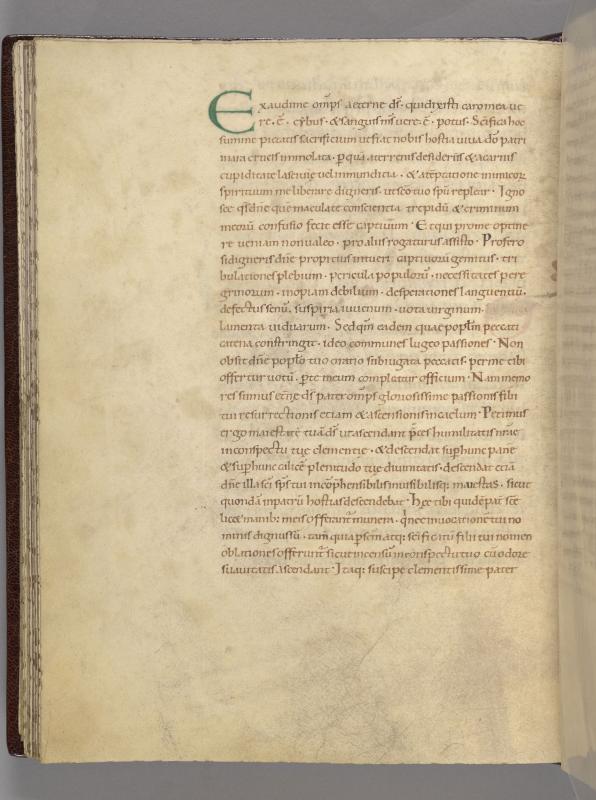 Exaudi me omps aeterne ds. qui dixisti caro mea ve
re. ē. cybus. & sanguis ms vere. ē. potus. Scifica hoc
summe pietatis sacrificium ut fiat nobis hostia viva dō patri
in ara crucis immolata. p quā a terrenis desideriis & a carnis
cupiditate lascivie vel inmundicia. & a teptatione inimicor
spirituum me liberare digneris. ut sco tuo spū replear. Igno
sce qs dne que maculate conscientia trepidū & criminum
meorū confusio fecit esse captivum. Et qui pro me optine
re veniam non valeo. pro aliis rogaturus assisto. Profero
si digneris dne propicius intueri captivorū gemitus. tri
bulationes plebium. pericula populorū. necessitates pere
grinorum. inopiam debilium. desperationes languentiū.
defectus senū. suspiria iuvenum. vota virginum.
lamenta viduarum. Sed qm eadem quae poplm peccati
catena constringit. ideo communes lugeo passiones. Non
obsit dne poplo tuo oratio subiugata peccatis. per me tibi
offertur votū. p te meum compleatur officium. Nam memo
res sumus etne ds pater omps gloriosissime passionis filii
tui resurrectionis etiam & ascensionis in caelum. Petimus
ergo maiestatē tuā ds ut ascendant pces humilitatis nrae
in conspectu tuę clementie. & descendat sup hunc pane
& sup hunc calice plenitudo tuę divinitatis. descendat etiā
dne illa sci sps tui incophensibilis invisibilisq; maiestas. sicut
quondā in patrū hostias descendebat. Hęc tibi quidē pat scē
licet manib; meis offerunt munera. q nec invocatione tui no
minis dignus sū. tam quia p scm atq; scificatū filii tui nomen
oblationes offerunt sicut incensū in conspectu tuo cū odore
suavitatis ascendant. Itaq; suscipe clementissime pater